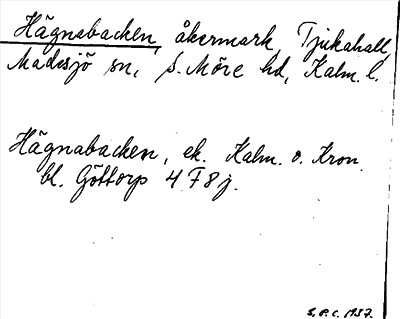 Hägnabacken, åkermark, Tjukahall,
Madesjö sn, S. Möre hd, Kalm. l.
Hägnabacken, ek. Kalm. o. Kron.
bl. Göttorp 4 F 8 j.
S.P.C. 1937.